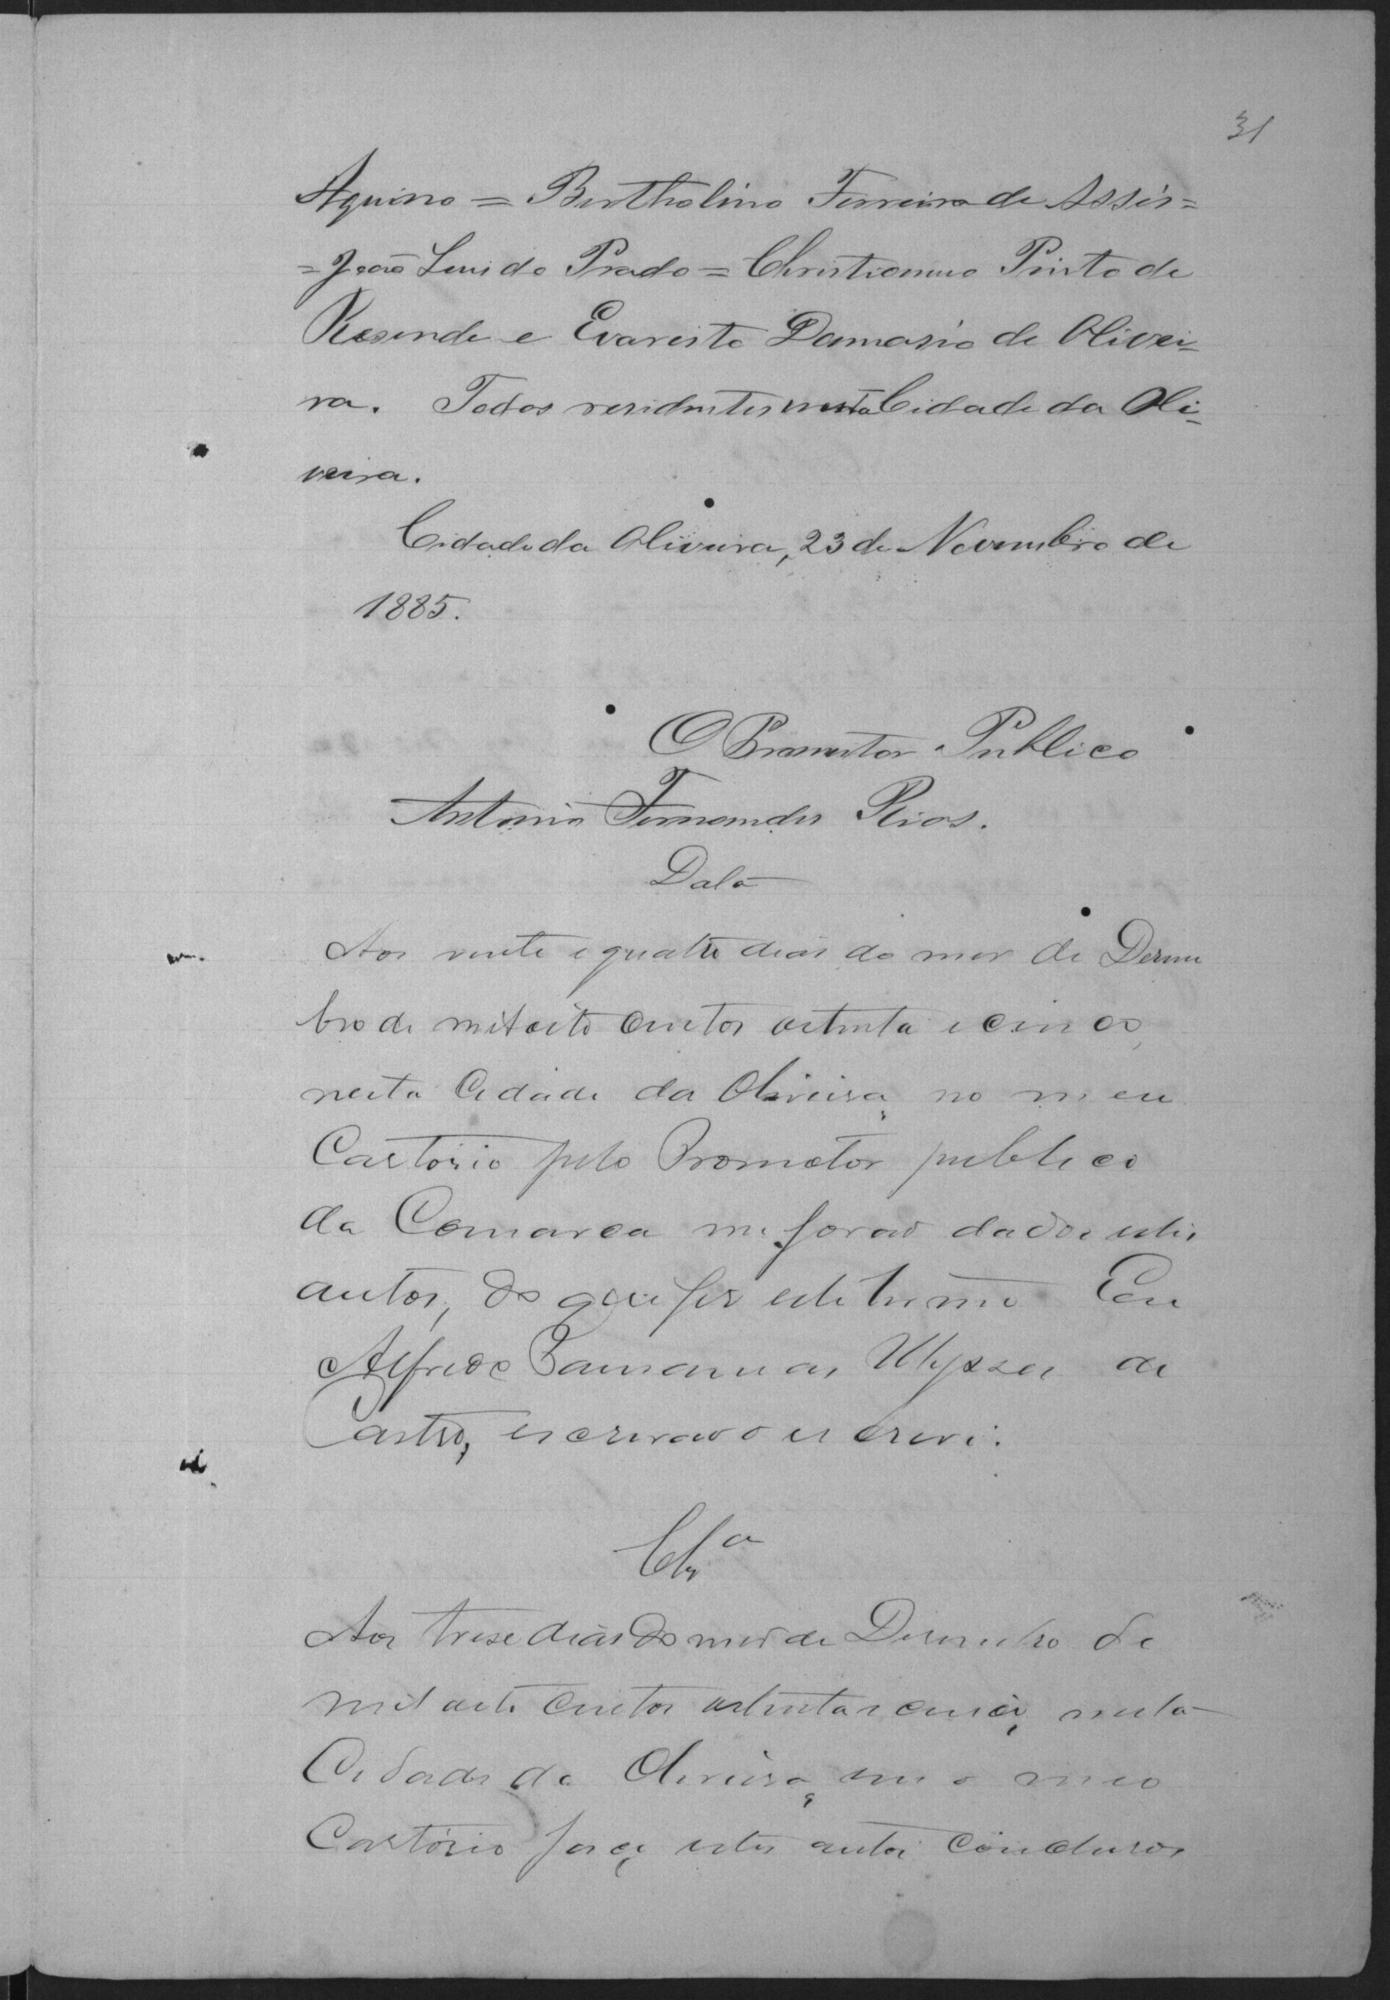 31
Aquino = Bertholino Ferreira de Assis =
= João Luis do Prado = Christianno Pinto de
Resende e Evaristo Damasio de Olivei-
ra. Todos residentes nesta Cidade da Oli-
veira.
Cidade da Oliveira, 23 de Novembro de
1885.
O Promotor Publico
Antonio Fernandes Rios.
Data
Aos vinte e quatro dias do mes de Desem
bro de mil oito centos oitenta e cinco,
nesta Cidade da Oliveira, no meu
Cartorio pelo Promotor publico
da Comarca me forão dados estes
autos, do que fis este termo Eu
Alfredo Ulysses de
Castro, escrivão o escrevi.
Clsa
Aos trese dias do mes de Desembro de
mil oito centos oitenta e cinco, nesta
Cidade da Oliveira, em o meo
Cartorio faço estes autos conclusos